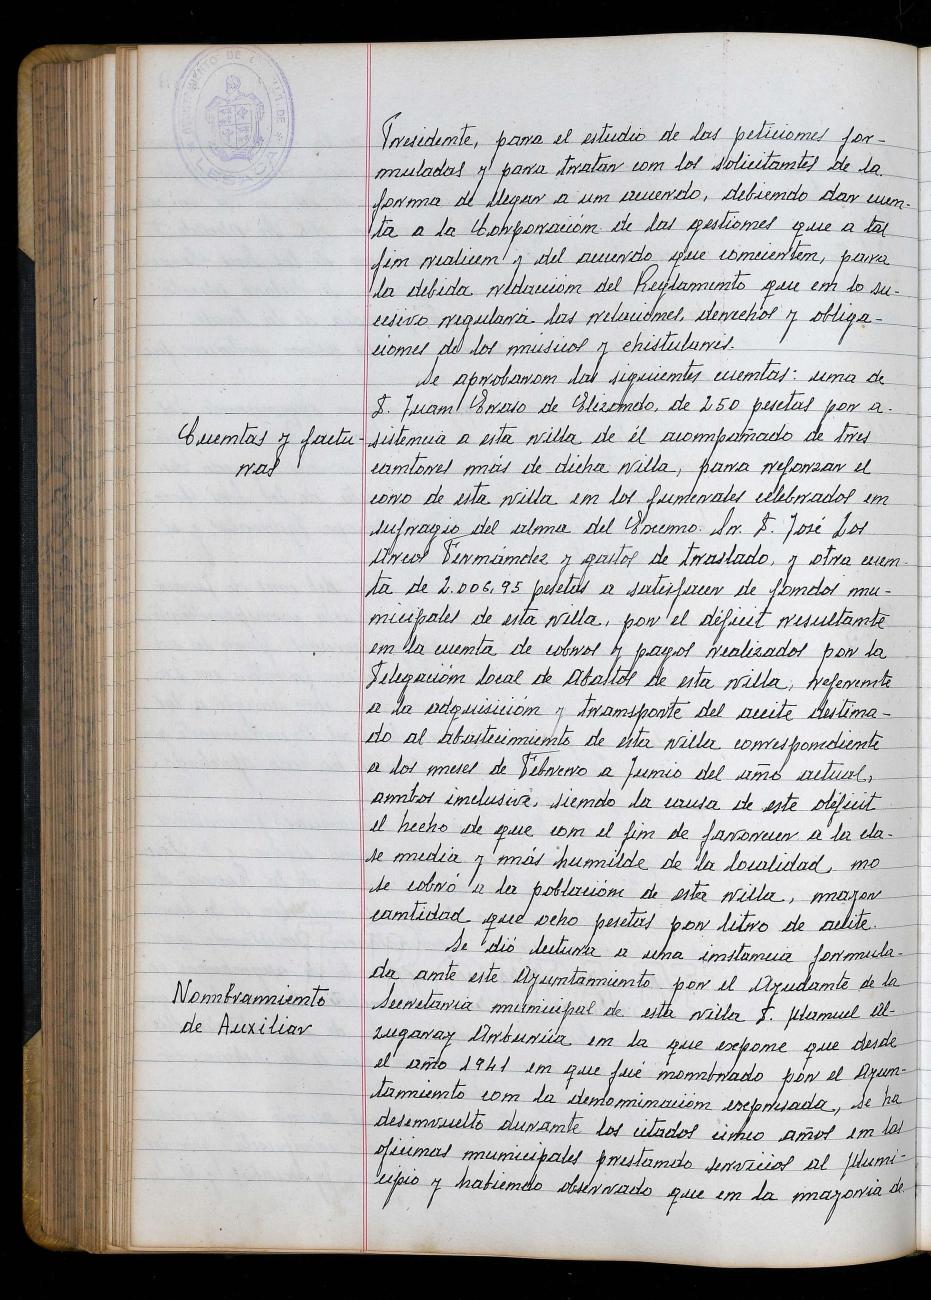 AYUNTAMIENTO DE
LESACA
Presidente, para el estudio de las peticiones for-
muladas y para tratar con los solicitantes de la
forma de llegar a un acuerdo, debiendo dar cuen-
ta a la Corporación de las gestiones que a tal
fin realicen y del acuerdo que concierten, para
la debida redacción del Reglamento que en lo su-
cesivo regulará las relaciones, derechos y obliga-
ciones de los músicos y chistularis.
Cuentas y factu-
ras
Se aprobaron las siguientes cuentas: una de
D. Juan Eraso de Elizondo, de 250 pesetas por a-
sistencia a esta villa de él acompañado de tres
cantores más de dicha villa, para reforzar el
coro de esta villa en los funerales celebrados en
sufragio del alma del Excmo. Sr. D. José Los
Arcos Fernández y gastos de traslado, y otra cuen-
ta de 2.006,95 pesetas a satisfacer de fondos mu-
nicipales de esta villa, por el déficit resultante
en la cuenta de cobros y pagos realizados por la
Delegación local de Abastos de esta villa, referente
a la adquisición y transporte del aceite destina-
do al abastecimiento de esta villa correspondiente
a los meses de Febrero a Junio del año actual,
ambos inclusive, siendo la causa de este déficit
el hecho de que con el fin de favorecer a la cla-
se media y más humilde de la localidad, no
se cobró a la población de esta villa, mayor
cantidad que ocho pesetas por litro de aceite.
Nombramiento
de Auxiliar
Se dió lectura a una instancia formula-
da ante este Ayuntamiento por el Ayudante de la
Secretaría municipal de esta villa D. Manuel Al-
zugaray Arburúa en la que expone que desde
el año 1941 en que fué nombrado por el Ayun-
tamiento con la denominación expresada, se ha
desenvuelto durante los citados cinco años en las
oficinas municipales prestando servicios al Muni-
cipio y habiendo observado que en la mayoría de